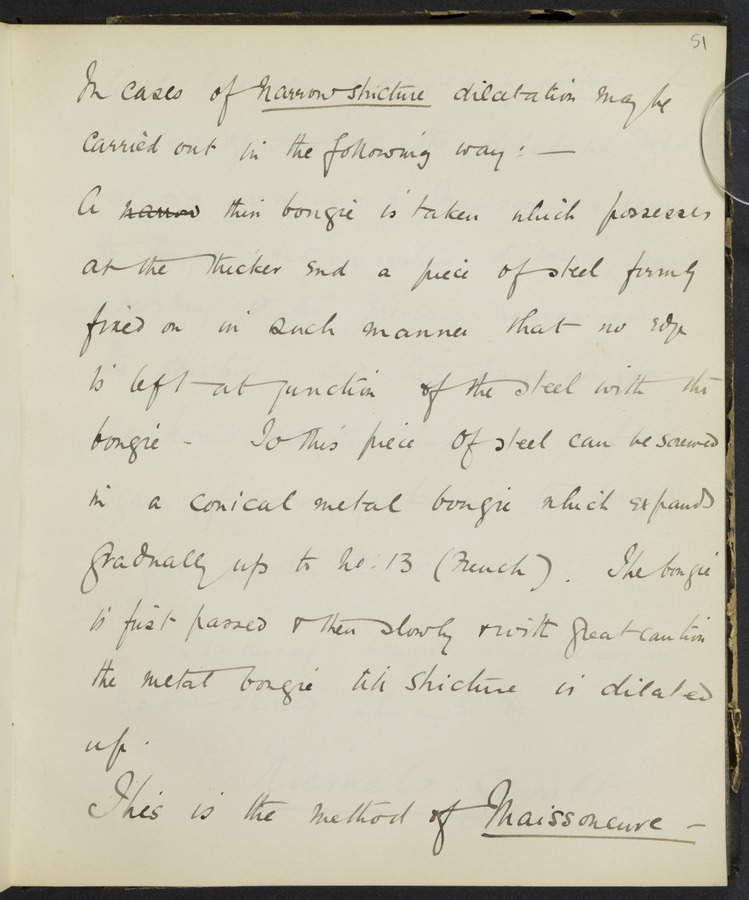 51
In cases of narrow stricture dilatation may be
carried out in the following way: —
A narrow thin bougie is taken which possesses
at the thicker end a piece of steel firmly
fixed on in such manner that no edge
is left at junction of the steel with the
bougie - To this piece of steel can be screwed
in a conical metal bougie which expands
gradually up to No. 13 (French). The bougie
is first passed & then slowly & with great caution
the metal bougie till stricture is dilated
up.
This is the method of Maissoneuve -